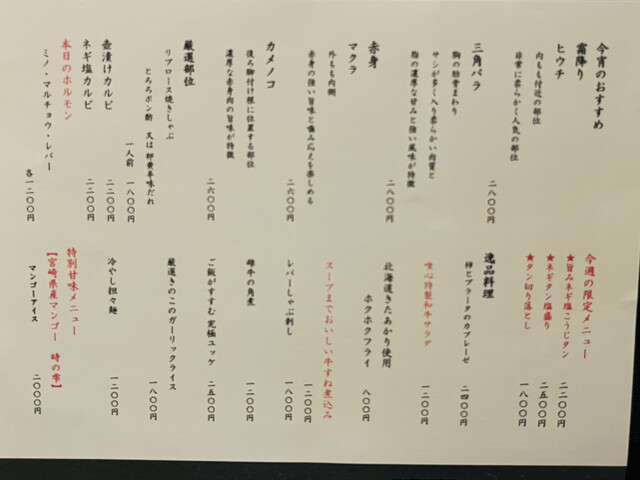 今宵のおすすめ
霜降り
ヒウチ
内もも付近の部位
非常に柔らかく人気の部位
三角バラ 二八〇〇円
胸の肋骨まわり
サシが多く入り柔らかい肉質と
脂の濃厚な甘みと強い風味が特徴
赤身
マクラ 二八〇〇円
外もも内側
赤身の強い旨味と噛み応えを楽しめる
カメノコ 二六〇〇円
後ろ脚付け根に位置する部位
濃厚な赤身肉の旨味が特徴
厳選部位 二六〇〇円
リブロース焼きしゃぶ
とろろポン酢 又は 卵黄辛味だれ
一人前 一八〇〇円
壺漬けカルビ 二二〇〇円
ネギ塩カルビ 二二〇〇円
本日のホルモン
ミノ・マルチョウ・レバー
各一二〇〇円
今週の限定メニュー
★旨みネギ塩こうじタン 二二〇〇円
★ネギタン塩盛り 二五〇〇円
★タン切り落とし 一八〇〇円
逸品料理
柿とブラータのカプレーゼ 二四〇〇円
唯心特製和牛サラダ 一二〇〇円
北海道きたあかり使用
ホクホクフライ 八〇〇円
スープまでおいしい牛すね煮込み
一二〇〇円
レバーしゃぶ刺し 一八〇〇円
雌牛の角煮 一二〇〇円
ご飯がすすむ 究極ユッケ 二五〇〇円
厳選きのこのガーリックライス
一八〇〇円
冷やし担々麺 一二〇〇円
特別甘味メニュー
【宮崎県産マンゴー 時の雫】
マンゴーアイス 二〇〇〇円